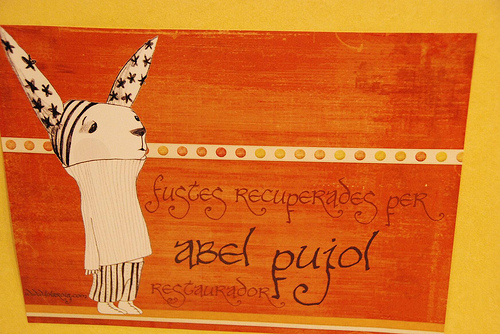 fustes recuperades per
abel pujol
restaurador